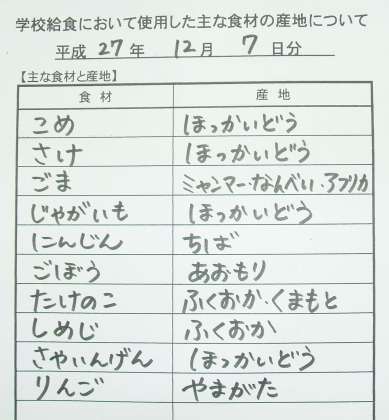 学校給食において使用した主な食材の産地について
平成 27 年 12 月 7 日分
【主な食材と産地】
食材 産地
こめ ほっかいどう
さけ ほっかいどう
ごま ミャンマー・なんべい・アフリカ
じゃがいも ほっかいどう
にんじん ちば
ごぼう あおもり
たけのこ ふくおか・くまもと
しめじ ふくおか
さやいんげん ほっかいどう
りんご やまがた